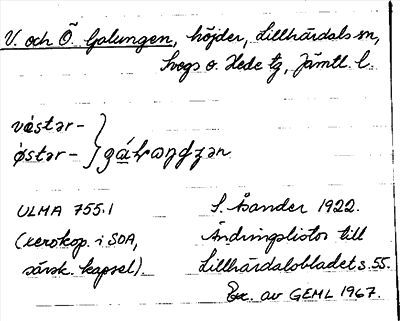 V. och Ö. Galungen, höjder, Lillhärdals sn,
Svegs o. Hede tg, Jämtl. l.
västər-
østər-
ULMA 755.1
(xerokop. i SOA,
särsk. kapsel).
L. Åsander 1922.
Ändringslistor till
Lillhärdalsbladet s. 55.
Exc. av GEML 1967.